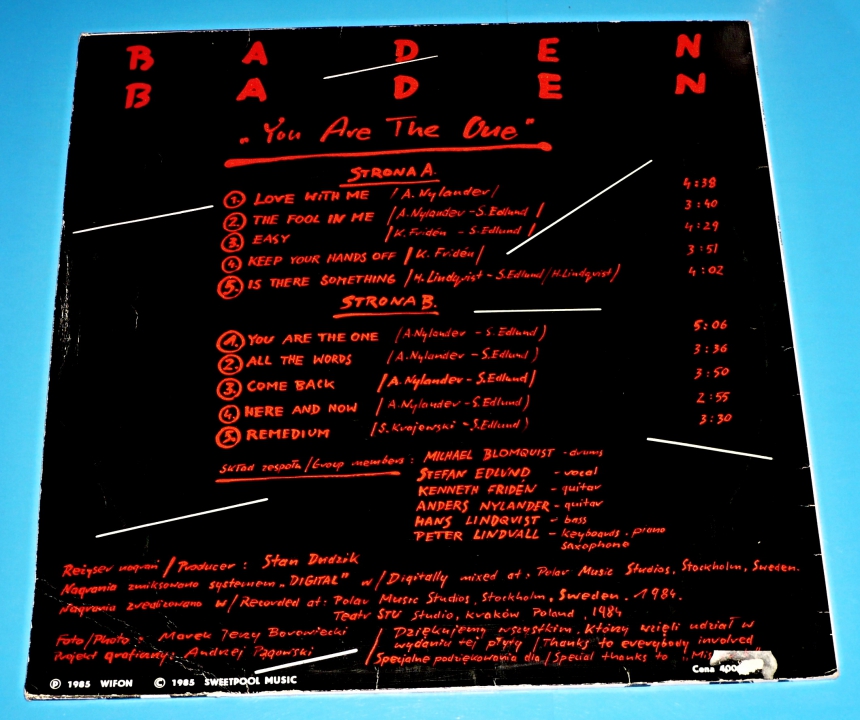 BADEN
BADEN
„You Are The One"
STRONA A.
1. LOVE WITH ME /A. Nylander/ 4:38
2. THE FOOL IN ME /A. Nylander - S. Edlund/ 3:40
3. EASY /K. Fridén - S. Edlund/ 4:29
4. KEEP YOUR HANDS OFF /K. Fridén/ 3:51
5. IS THERE SOMETHING /H. Lindqvist - S. Edlund/H. Lindqvist) 4:02
STRONA B.
1. YOU ARE THE ONE /A. Nylander - S. Edlund) 5:06
2. ALL THE WORDS /A. Nylander - S. Edlund) 3:36
3. COME BACK /A. Nylander - S. Edlund/ 3:50
4. HERE AND NOW /A. Nylander - S. Edlund) 2:55
5. REMEDIUM /S. Krajewski - S. Edlund) 3:30
Skład zespołu/Group members: MICHAEL BLOMQUIST - drums
STEFAN EDLUND - vocal
KENNETH FRIDÉN - guitar
ANDERS NYLANDER - guitar
HANS LINDQVIST - bass
PETER LINDVALL - keyboards, piano
saxophone
Reżyser nagrań/Producer: Stan Dudzik
Nagrania zmiksowano systemem „DIGITAL" w/Digitally mixed at: Polar Music Studios, Stockholm, Sweden.
Nagrania zrealizowano w/Recorded at: Polar Music Studios, Stockholm, Sweden. 1984.
Teatr STU Studio, Kraków Poland, 1984
Foto/Photo: Marek Jerzy Borowiecki / Dziękujemy wszystkim, którzy wzięli udział w
Projekt graficzny: Andrzej Pągowski wydaniu tej płyty/Thanks to everybody involved
Specjalne podziękowania dla/Special thanks to
Cena
Ⓟ 1985 WIFON © 1985 SWEETPOOL MUSIC